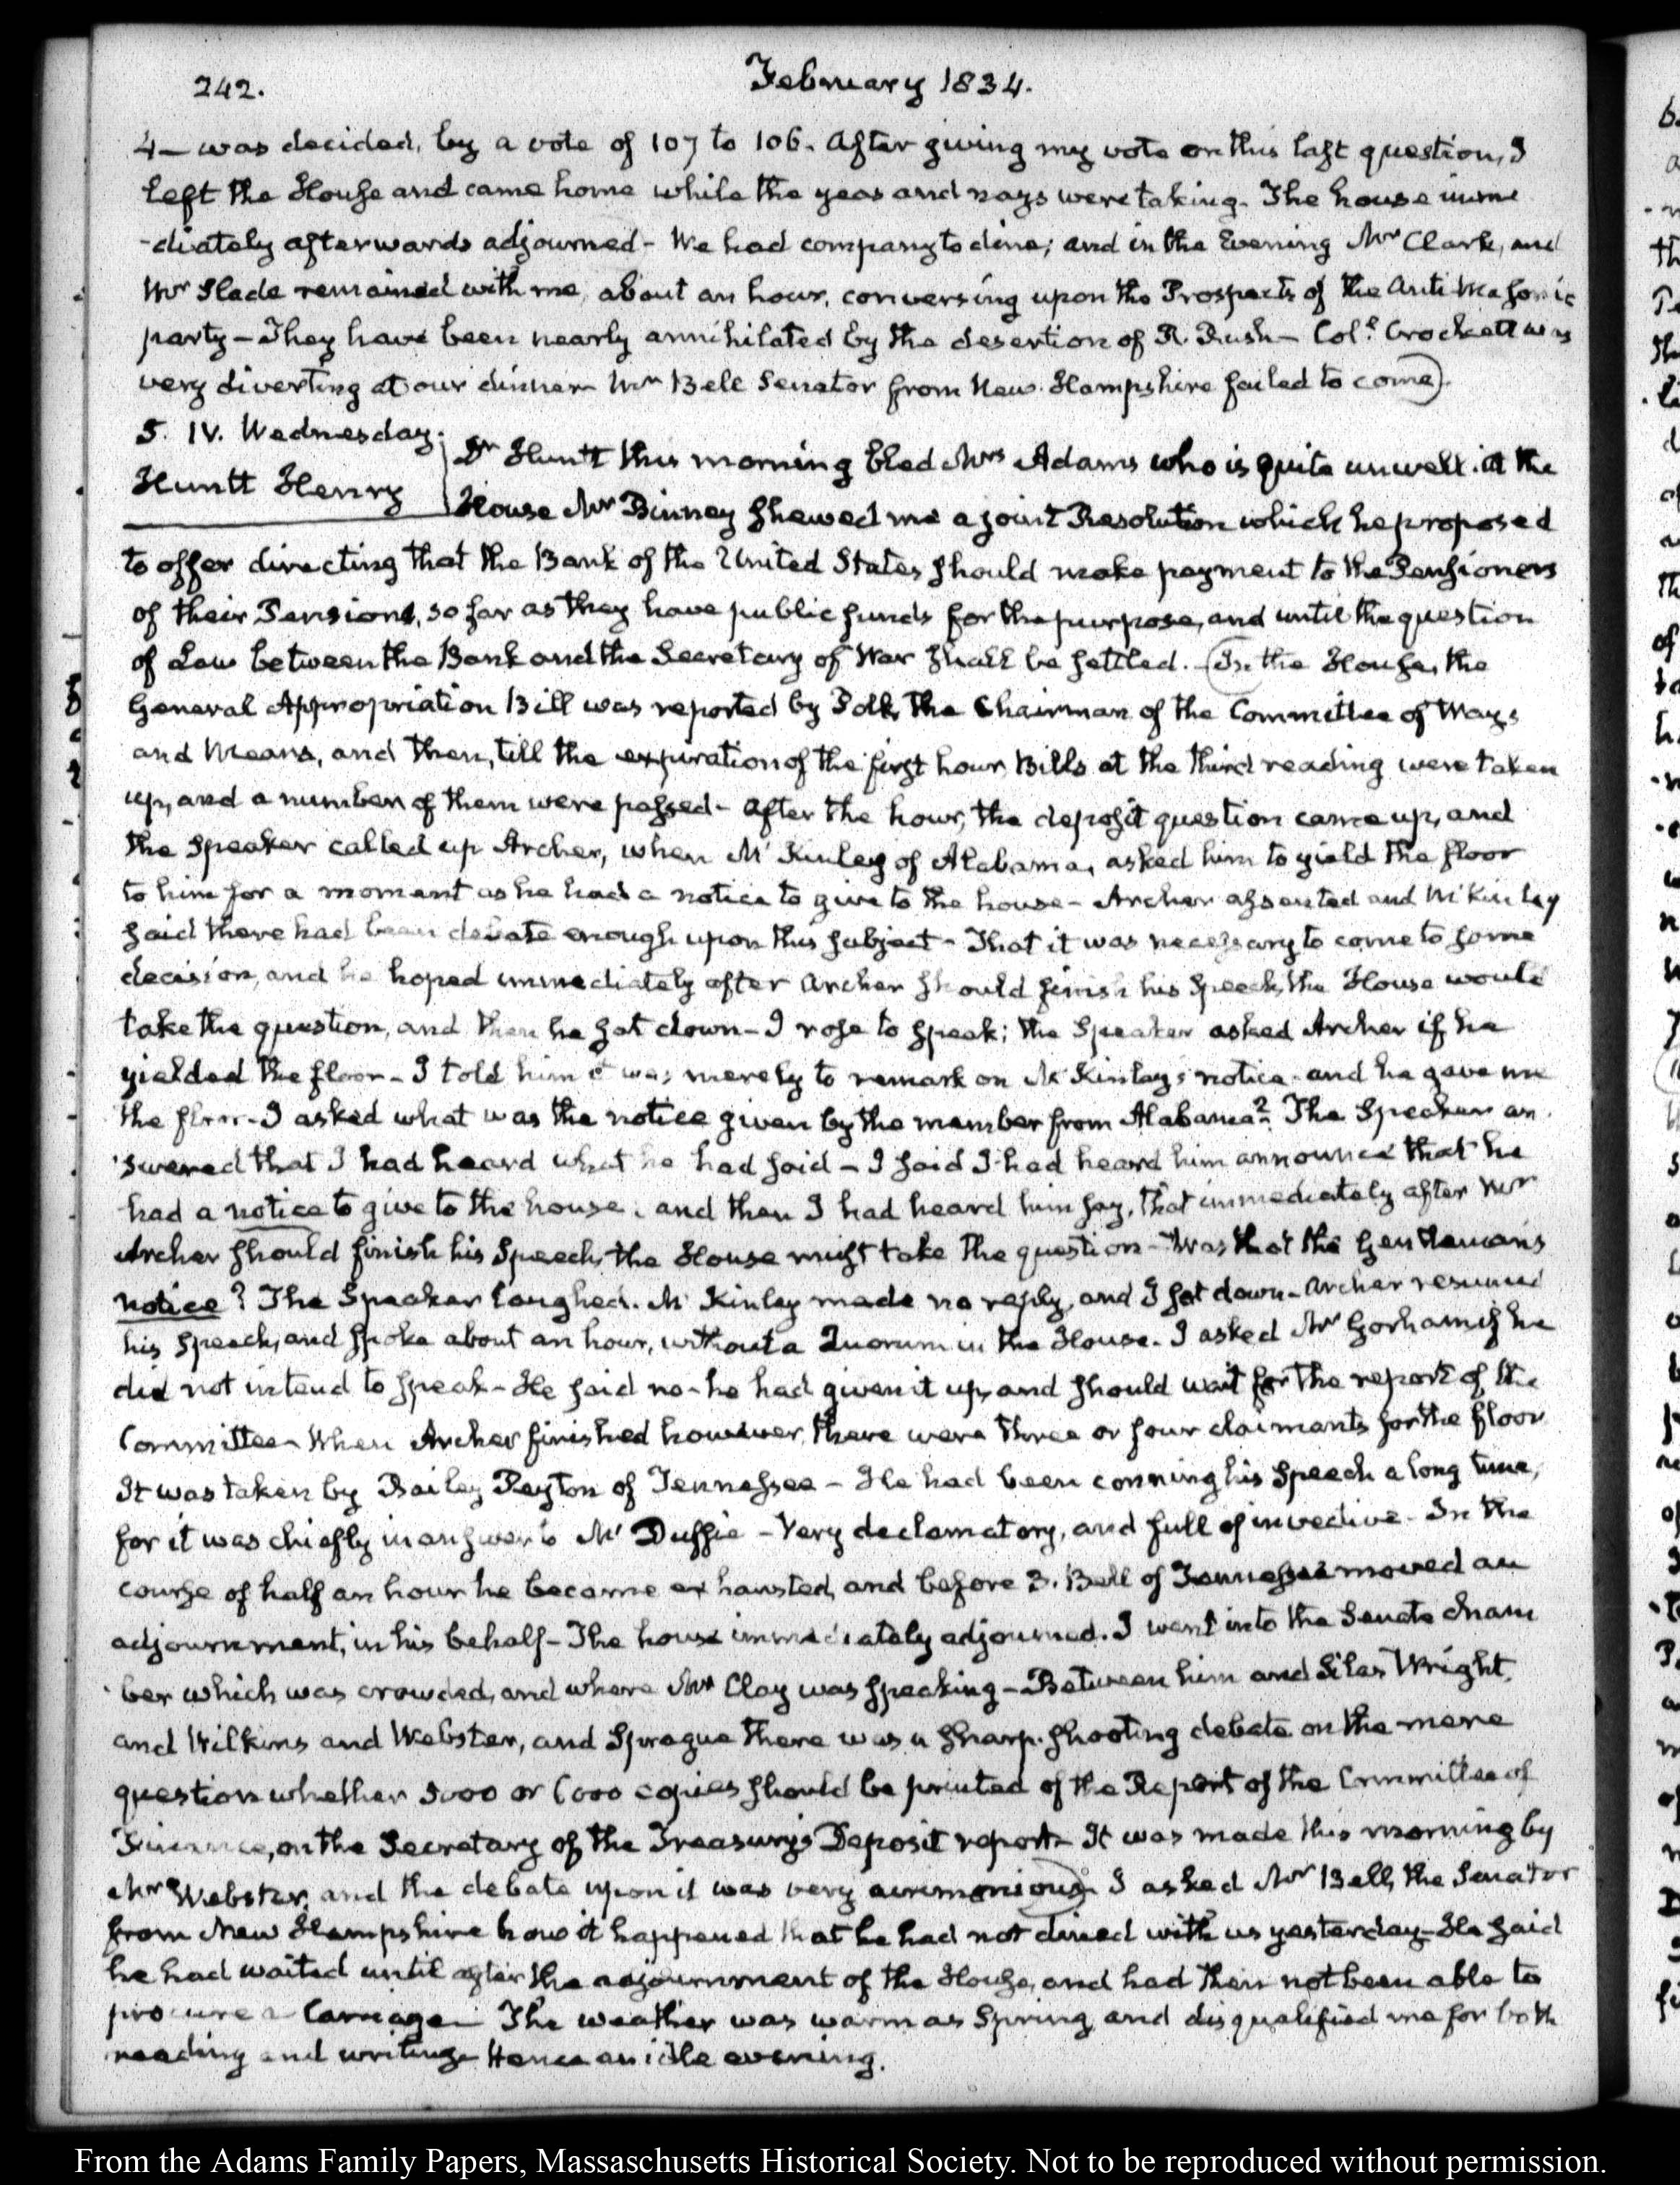 242.
February 1834.
4— was decided, by a vote of 107 to 106. After giving my vote on this last question, I
left the House and came home while the yeas and nays were taking. The house imme
-diately afterwards adjourned- We had company to dine; and in the Evening Mr Clark, and
Mr Slade remained with me, about an hour, conversing upon the Prospects of the Anti Masonic
party- They have been nearly annihilated by the desertion of R. Rush- Col.l Crockett was
very diverting at our dinner- Mr Bell Senator from New-Hampshire failed to come).
5. IV. Wednesday.
Huntt Henry
Dr Huntt this morning bled Mrs Adams who is quite unwell. At the
House Mr Binney shewed me a joint Resolution which he proposed
to offer directing that the Bank of the United States should make payment to the Pensioners
of their Pensions, so far as they have public funds for the purpose, and until the question
of Law between the Bank and the Secretary of War shall be settled. (In the House, the
General Appropriation Bill was reported by Polk, the Chairman of the Committee of Ways
and Means, and then, till the expiration of the first hour Bills at the third reading were taken
up, and a number of them were passed- After the hour, the deposit question came up, and
the Speaker called up Archer, when Mc Kinley of Alabama, asked him to yield the floor
to him for a moment as he had a notice to give to the house- Archer assented and McKinley
said there had been debate enough upon this subject- That it was necessary to come to some
decision, and he hoped immediately after Archer should finish his Speech, the House would
take the question, and then he sat down- I rose to speak; the Speaker asked Archer if he
yielded the floor- I told him it was merely to remark on Mc Kinley's notice- and he gave me
the floor- I asked what was the notice given by the member from Alabama? The Speaker an
-swered that I had heard what he had said- I said I had heard him announce that he
had a notice to give to the house, and then I had heard him say, that immediately after Mr
Archer should finish his Speech, the House must take the question- Was that the Gentleman's
notice? The Speaker laughed. Mc Kinley made no reply, and I sat down- Archer resumed
his Speech, and spoke about an hour, without a Quorum in the House. I asked Mr Gorham if he
did not intend to speak- He said no- he had given it up, and should wait for the report of the
Committee- When Archer finished however, there were three or four claimants for the floor
It was taken by Bailey Peyton of Tennessee- He had been conning his Speech a long time,
for it was chiefly in answer to Mc Duffie- Very declamatory, and full of invective- In the
course of half an hour he became exhausted, and before 3. Bell of Tennessee moved an
adjournment, in his behalf- The house immediately adjourned. I went into the Senate Cham
-ber which was crowded, and where Mr Clay was speaking- Between him and Silas Wright,
and Wilkins and Webster, and Sprague there was a sharp-shooting debate on the mere
question whether 3000 or 6000 copies should be printed of the Report of the Committee of
Finance, on the Secretary of the Treasury's Deposit report- It was made this morning by
Mr Webster, and the debate upon it was very acrimonious) I asked Mr Bell, the Senator
from New Hampshire how it happened that he had not dined with us yesterday- He said
he had waited until after the adjournment of the House, and had then not been able to
procure a Carriage- The weather was warm as Spring, and disqualified me for both
reading and writing- Hence an idle evening.
From the Adams Family Papers, Massachusetts Historical Society. Not to be reproduced without permission.